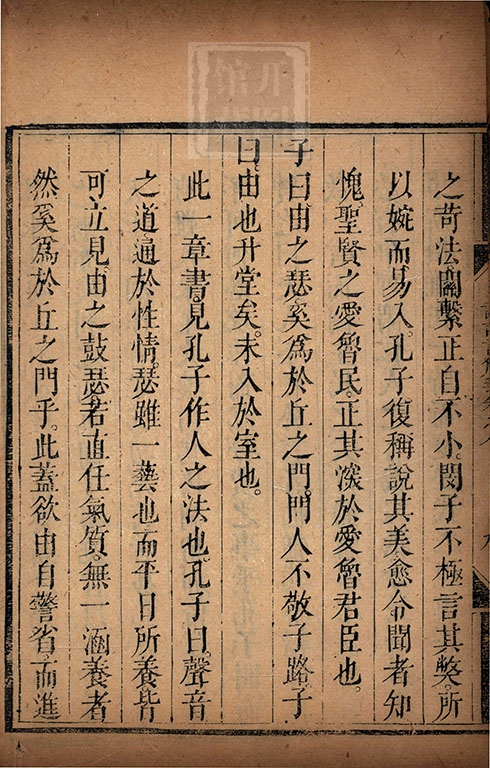 之苛法關繫正自不小。閔子不極言其獘。所
以婉而易入。孔子復稱說其美。愈令聞者知
愧。聖賢之愛魯民。正其深於愛魯君臣也。
子曰。由之瑟奚爲於丘之門。門人不敬子路。子
曰。由也升堂矣。未入於室也。
此一章書。見孔子作人之法也。孔子曰。聲音
之道通於性情。瑟雖一藝也。而平日所養皆
可立見。由之鼓瑟。若直任氣質。無一涵養者
然。奚爲於丘之門乎。此蓋欲由自警省。而進